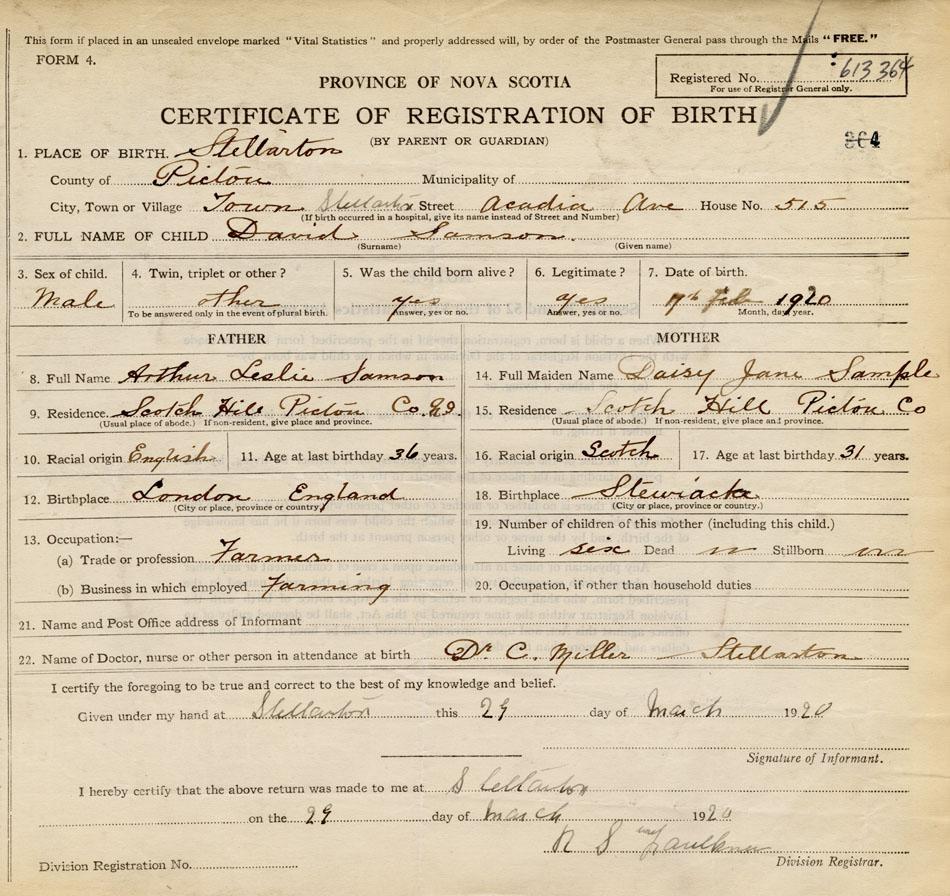 This form if placed in an unsealed envelope marked "Vital Statistics" and properly addressed will, by order of the Postmaster General pass through the Mails "FREE."
FORM 4.
PROVINCE OF NOVA SCOTIA
Registered No. 613364
For use of Registrar General only.
CERTIFICATE OF REGISTRATION OF BIRTH
(BY PARENT OR GUARDIAN)
364
1. PLACE OF BIRTH. Stellarton
County of Pictou Municipality of
City, Town or Village Town Stellarton Street Acadia Ave House No. 515
(If birth occurred in a hospital, give its name instead of Street and Number)
2. FULL NAME OF CHILD David Samson.
(Surname) (Given name)
3. Sex of child. 4. Twin, triplet or other? 5. Was the child born alive? 6. Legitimate? 7. Date of birth.
Male other yes yes Feb 1920
To be answered only in the event of plural birth. Answer, yes or no. Answer, yes or no. Month, day, year.
FATHER MOTHER
8. Full Name Arthur Leslie Samson 14. Full Maiden Name Daisy Jane Sample
9. Residence. Scotch Hill Pictou Co. N.S. 15. Residence Scotch Hill Pictou Co
(Usual place of abode.) If non-resident, give place and province. (Usual place of abode.) If non-resident, give place and province.
10. Racial origin English 11. Age at last birthday 36 years. 16. Racial origin Scotch 17. Age at last birthday 31 years.
12. Birthplace London England 18. Birthplace Stewiacke
(City or place, province or country) (City or place, province or country.)
13. Occupation:— 19. Number of children of this mother (including this child.)
(a) Trade or profession Farmer Living six Dead Stillborn
(b) Business in which employed Farming 20. Occupation, if other than household duties
21. Name and Post Office address of Informant
22. Name of Doctor, nurse or other person in attendance at birth Dr C. Miller Stellarton
I certify the foregoing to be true and correct to the best of my knowledge and belief.
Given under my hand at Stellarton this 29 day of March 1920
Signature of Informant.
I hereby certify that the above return was made to me at Stellarton
on the 29 day of March 1920
N S Faulkner
Division Registration No. Division Registrar.